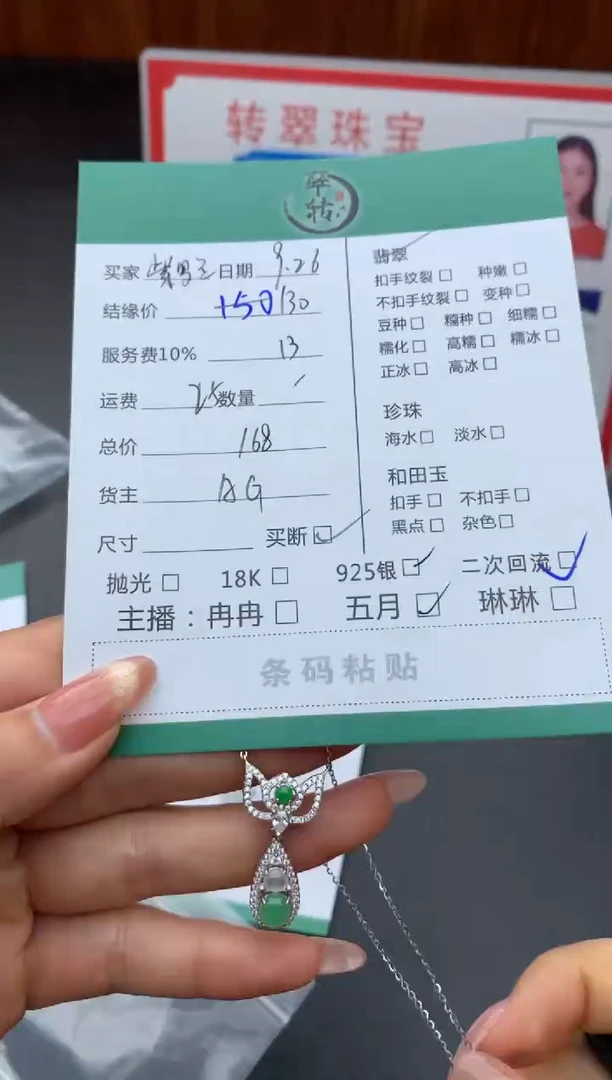 转翠珠宝
翠
转
买家 日期 9.26
结缘价 +50 130
服务费10% 13
运费 25 数量
总价 168
货主 AG
尺寸 买断
翡翠
扣手纹裂 种嫩
不扣手纹裂 变种
豆种 糯种 细糯
糯化 高糯 糯冰
正冰 高冰
珍珠
海水 淡水
和田玉
扣手 不扣手
黑点 杂色
抛光 18K 925银 二次回流
主播：冉冉 五月 琳琳
条码粘贴